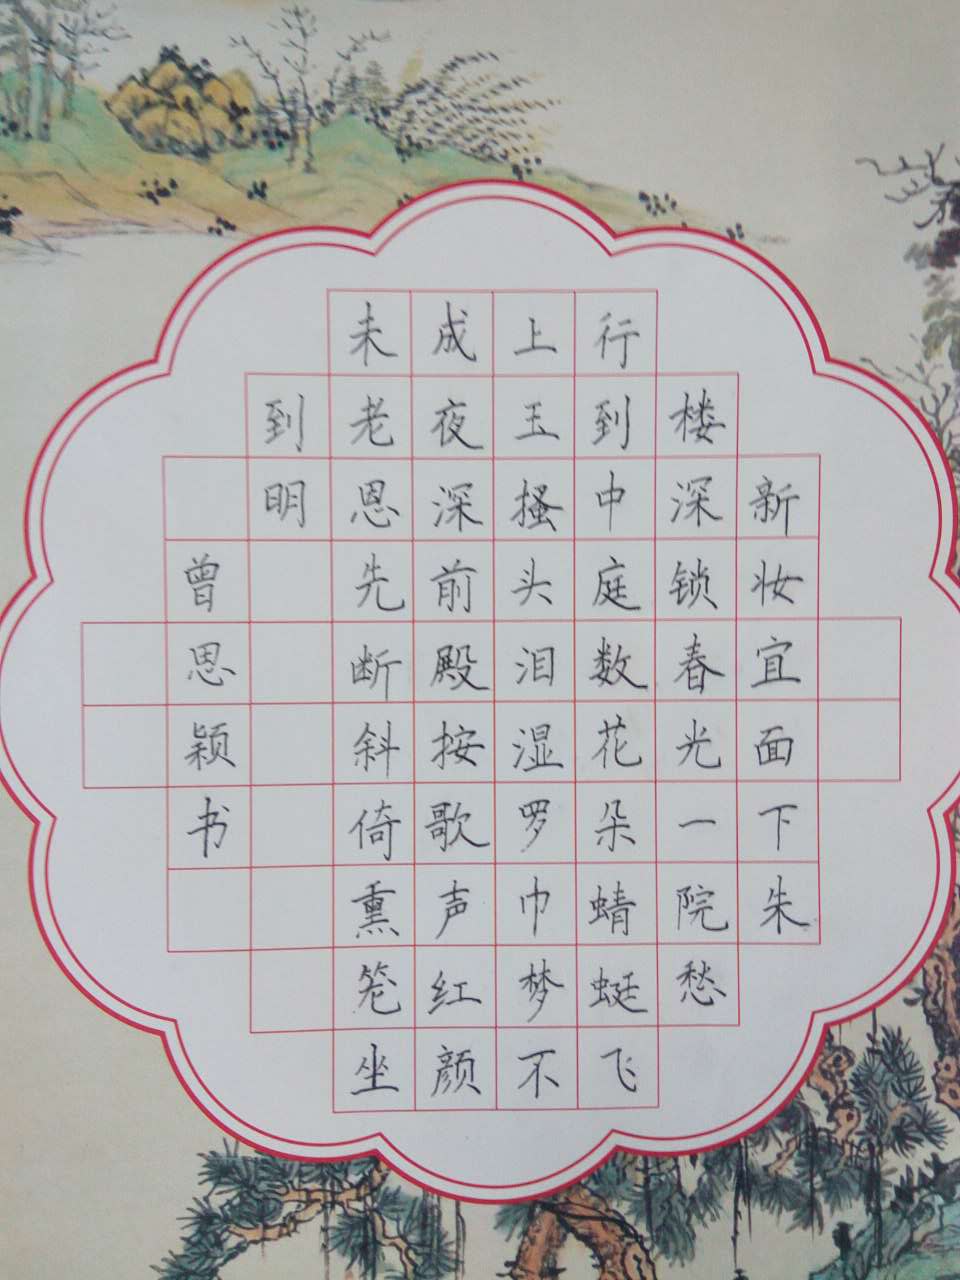 新妆宜面下朱
楼深锁春光一院愁
行到中庭数花朵蜻蜓飞
上玉搔头泪湿罗巾梦不
成夜深前殿按歌声红颜
未老恩先断斜倚熏笼坐
到明
曾思颖书